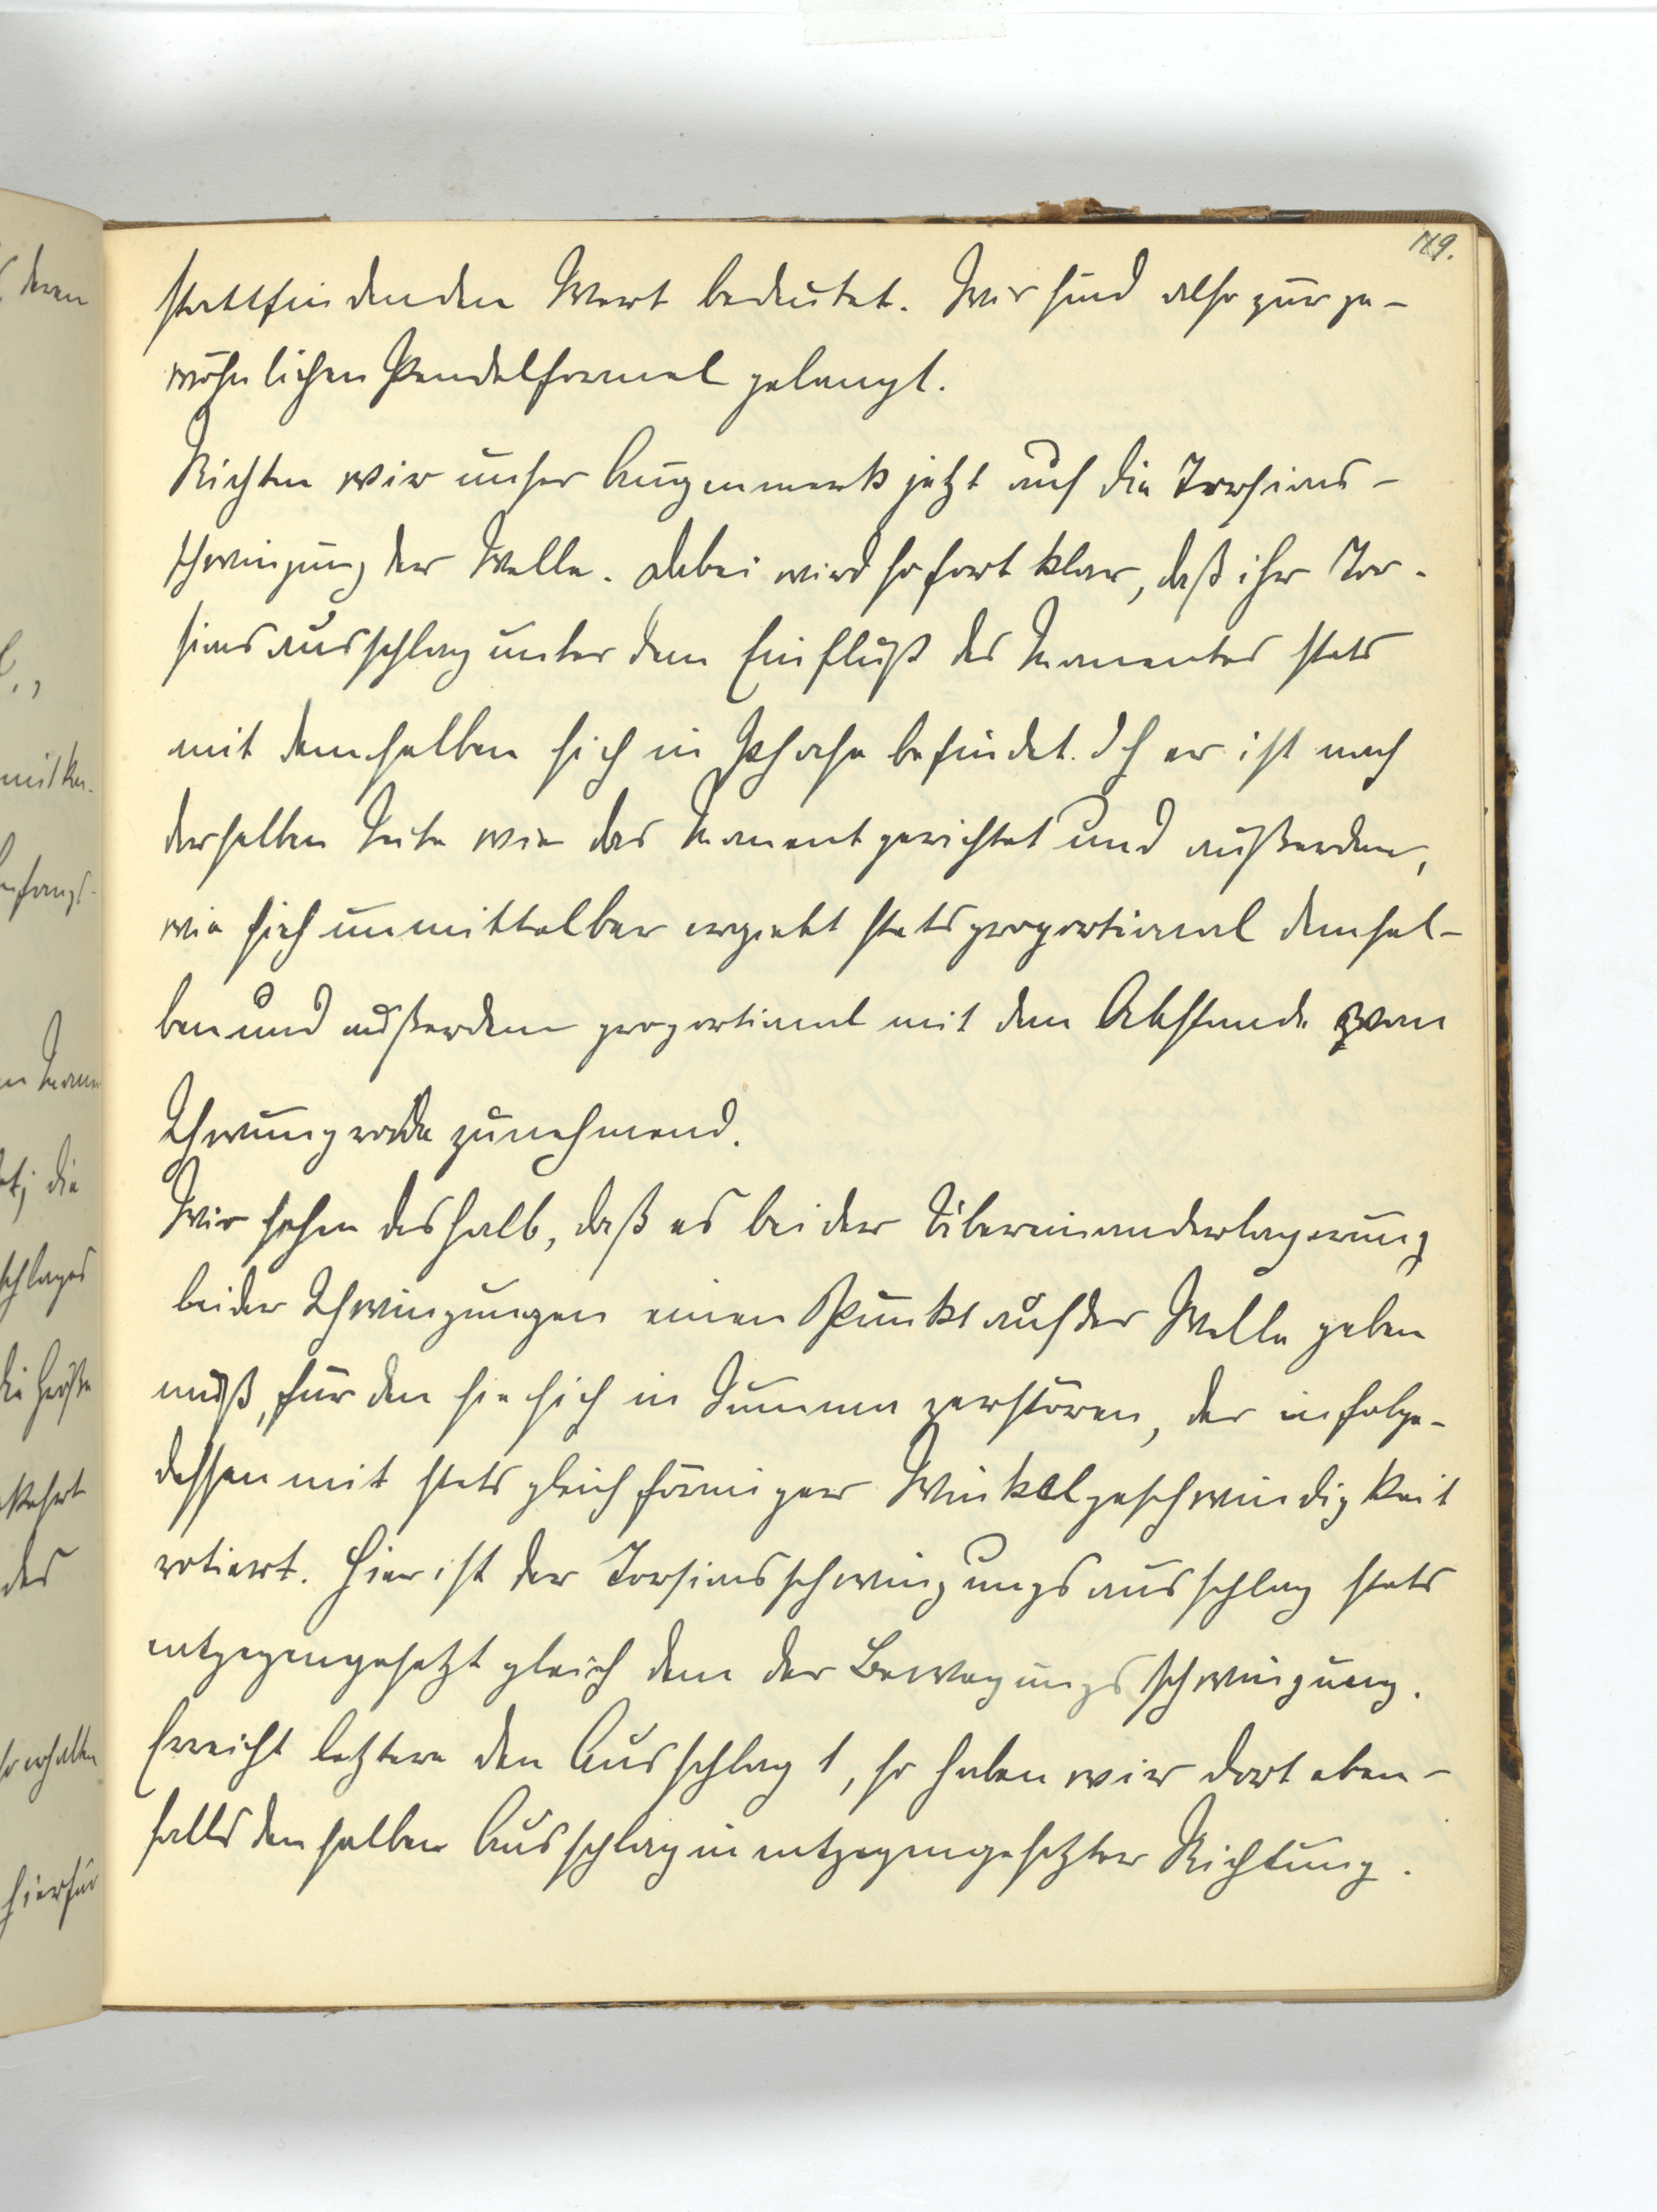 119.
stattfindenden Wert bedeutet. Wir sind also zur ge-
wöhnlichen Pendelformel gelangt.
Richten wir unser Augenmerk jetzt auf die Torsions-
schwingung der Welle. Dabei wird sofort klar, daß ihr Tor-
sionsausschlag unter dem Einfluß des Momentes stets
mit demselben sich in Phase befindet. d h er ist nach
derselben Seite wie das Moment gerichtet und außerdem,
wie sich unmittelbar ergiebt stets proportional demsel-
ben und außerdem proportional mit dem Abstande vom
Schwungrade zunehmend.
Wir sehen deshalb, daß es bei der Übereinanderlagerung
beider Schwingungen einen Punkt auf der Welle geben
muß, für den sie sich in Summa zerstören, der infolge-
dessen mit stets gleichförmiger Winkelgeschwindigkeit
rotiert. Hier ist der Torsionsschwingungsausschlag stets
entgegengesetzt gleich dem der Bewegungsschwingung.
Erreicht letztere den Ausschlag 1, so haben wir dort eben-
falls denselben Ausschlag in entgegengesetzter Richtung.